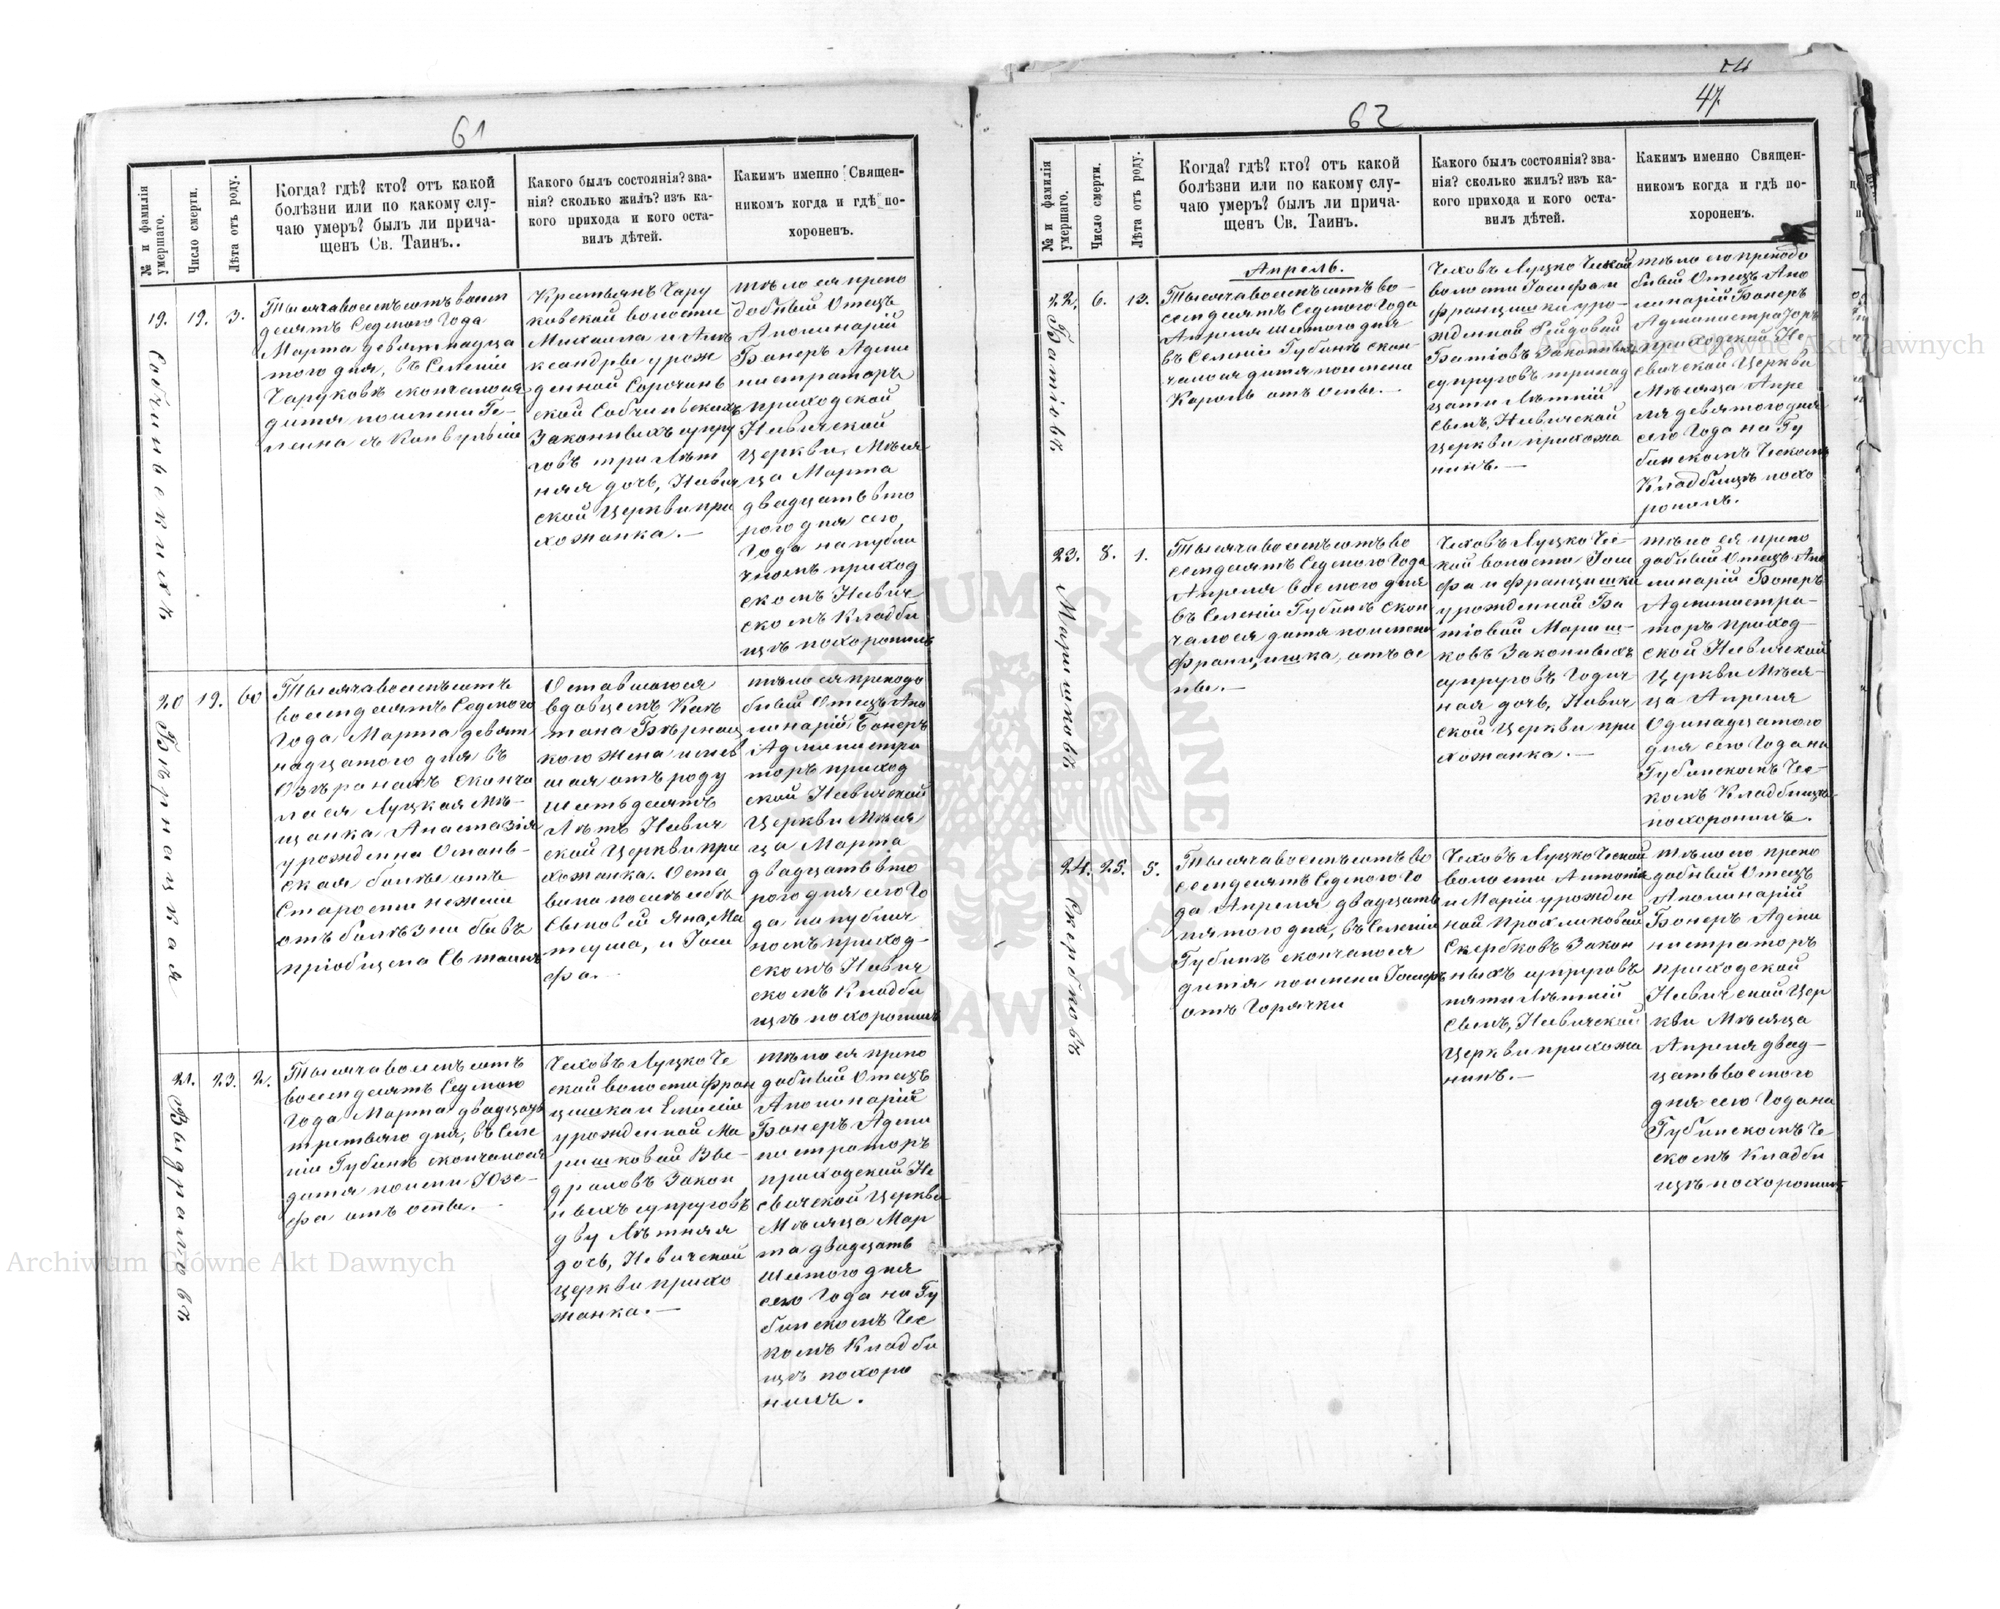 61
№ и фамилія умершаго.
Число смерти.
Лѣта отъ роду.
Когда? гдѣ? кто? отъ какой
болѣзни или по какому слу-
чаю умеръ? былъ ли прича-
щенъ Св. Таинъ..
Какого былъ состоянія? зва-
нія? сколько жилъ? изъ ка-
кого прихода и кого оста-
вилъ дѣтей.
Какимъ именно Священ-
никомъ когда и гдѣ по-
хороненъ.
19.
Собчинскихъ
19.
3.
Тысяча восемьсотъ восем
десятъ Седмого Года
Марта девятнадца
того дня, въ Селеніи
Чаруковъ скончалося
дитя по имени Ге-
лена съ Конвульсіи
Крестьянъ Чару
ковской волости
Михаила и Алек
ксандры урож
денной Сорочин
ской Собчинскихъ
Законныхъ супру
говъ три лѣт
няя дочь, Невич
ской Церкви при
хожанка.—
тѣло ея препо
добный Отецъ
Аполинарій
Бонеръ Адми
нистраторъ
приходской
Невичской
Церкви, Мѣся
ца Марта
двадцать вто
рого дня сего,
Года на публи
чномъ приход
скомъ Невич
скомъ Кладби
щѣ похоронилъ
20
Бѣрнацкая
19.
60
Тысяча восемьсотъ
восемдесятъ Седмого
Года Марта девят
надцатого дня въ
Озѣранахъ сконча
лася Луцкая Мѣ-
щанка Анастазія
урожденна Омань-
ская болѣе отъ
Старости нежели
отъ болѣзни бывъ
пріобщена Св таинъ
Оставшагося
вдовцемъ Каи
тана Бѣрнац
кого жена имев
шая отъ роду
шестьдесятъ
лѣтъ Невич
ской Церкви при
хожанка. Оста
вила после себѣ
Сыновей Яна, Ма
теуша, и Іоси
фа.—
тѣло ея преподо
бный Отецъ Апо
линарій Бонеръ
Администра
торъ приход
ской Невичской
Церкви Мѣся
ца Марта
двадцать вто
рого дня сего Го
да на публич
номъ приход-
скомъ Невич
скомъ Кладби
щѣ похоронилъ
21.
Выдраловъ
23.
2.
Тысяча восемьсотъ
восемдесятъ Седмого
Года Марта двадцать
третьяго дня, въ Селе
ніи Губинѣ скончалося
дитя по имени Юзе-
фа отъ оспы.—
Чеховъ Луцко Че
ской волости Фран
цишка и Емиліи
урожденной Ма
ришковой Вы-
драловъ Закон
ныхъ супруговъ
двулѣтняя
дочь, Невичской
церкви прихо
жанка.—
тѣло ея препо
добный Отецъ
Аполинарій
Бонеръ Адми
нистраторъ
приходской Не
вичской Церкви
Мѣсяца Мар
та двадцать
шестого дня
сего Года на Гу
бинскомъ Чес
комъ Кладби
щѣ похоро
нилъ.
54
47.
62
№ и фамилія умершаго.
Число смерти.
Лѣта отъ роду.
Когда? гдѣ? кто? отъ какой
болѣзни или по какому слу-
чаю умеръ? былъ ли прича-
щенъ Св. Таинъ.
Какого былъ состоянія? зва-
нія? сколько жилъ? изъ ка-
кого прихода и кого оста-
вилъ дѣтей.
Какимъ именно Священ-
никомъ когда и гдѣ по-
хороненъ.
22.
Батіовъ
6.
13.
Апрель.
Тысяча восемьсотъ во-
семдесятъ Седмого Года
Апреля шестого дня
въ Селеніи Губинѣ скон-
чалося дитя по имени
Кароль отъ оспы.—
Чеховъ Луцко Ческой
волости Іосифа и
францишки уро-
жденной Гейдовой
Батіовъ Законныхъ
супруговъ тринад
цати лѣтній
сынъ, Невичской
Церкви прихожа
нинъ.—
тѣло его преподо
бный Отецъ Апо
линарій Бонеръ
Администраторъ
приходской Не
вичской Церкви
Мѣсяца Апре
ля девятого дня
сего Года на Гу
бинскомъ Ческомъ
Кладбищѣ похо
ронилъ.
23.
Маришковъ
8.
1.
Тысяча восемьсотъ во
семдесятъ Седмого Года
Апреля восмого дня
въ Селеніи Губинѣ скон
чалося дитя по имени
францишка, отъ ос
пы.—
Чеховъ Луцко Че-
кой волости Іоси
фа и францишки
урожденной Ба
тіовой Мариш-
ковъ Законныхъ
супруговъ Годич
ная дочь, Невич
ской Церкви при
хожанка.—
тѣло ея препо
добный Отецъ Апо
линарій Бонеръ
Администра-
торъ приход-
ской Невичской
Церкви Мѣся-
ца Апреля
Одинадцатого
дня сего Года на
Губинскомъ Чес-
комъ Кладбищѣ
похоронилъ.
24.
Скербковъ
25.
5.
Тысяча восемьсотъ во
семдесятъ Седмого Го
да Апреля двадцать
пятого дня, въ Селеніи
Губинѣ скончалося
дитя по имени Іосифъ
отъ Горячки
Чеховъ Луцко Ческой
волости Антонія
и Маріи урожден
ной Прокликовой
Скербковъ Закон
ныхъ супруговъ
пятилѣтній
сынъ, Невичской
Церкви прихожа
нинъ.—
тѣло его препо
добный Отецъ
Аполинарій
Бонеръ Адми
нистраторъ
приходской
Невичской Цер
кви Мѣсяца
Апреля двад-
цать восмого
дня сего Года на
Губинскомъ Че
скомъ Кладби
щѣ похоронилъ
Archiwum Główne Akt Dawnych
Archiwum Główne Akt Dawnych
ARCHIWUM GŁÓWNE AKT DAWNYCH